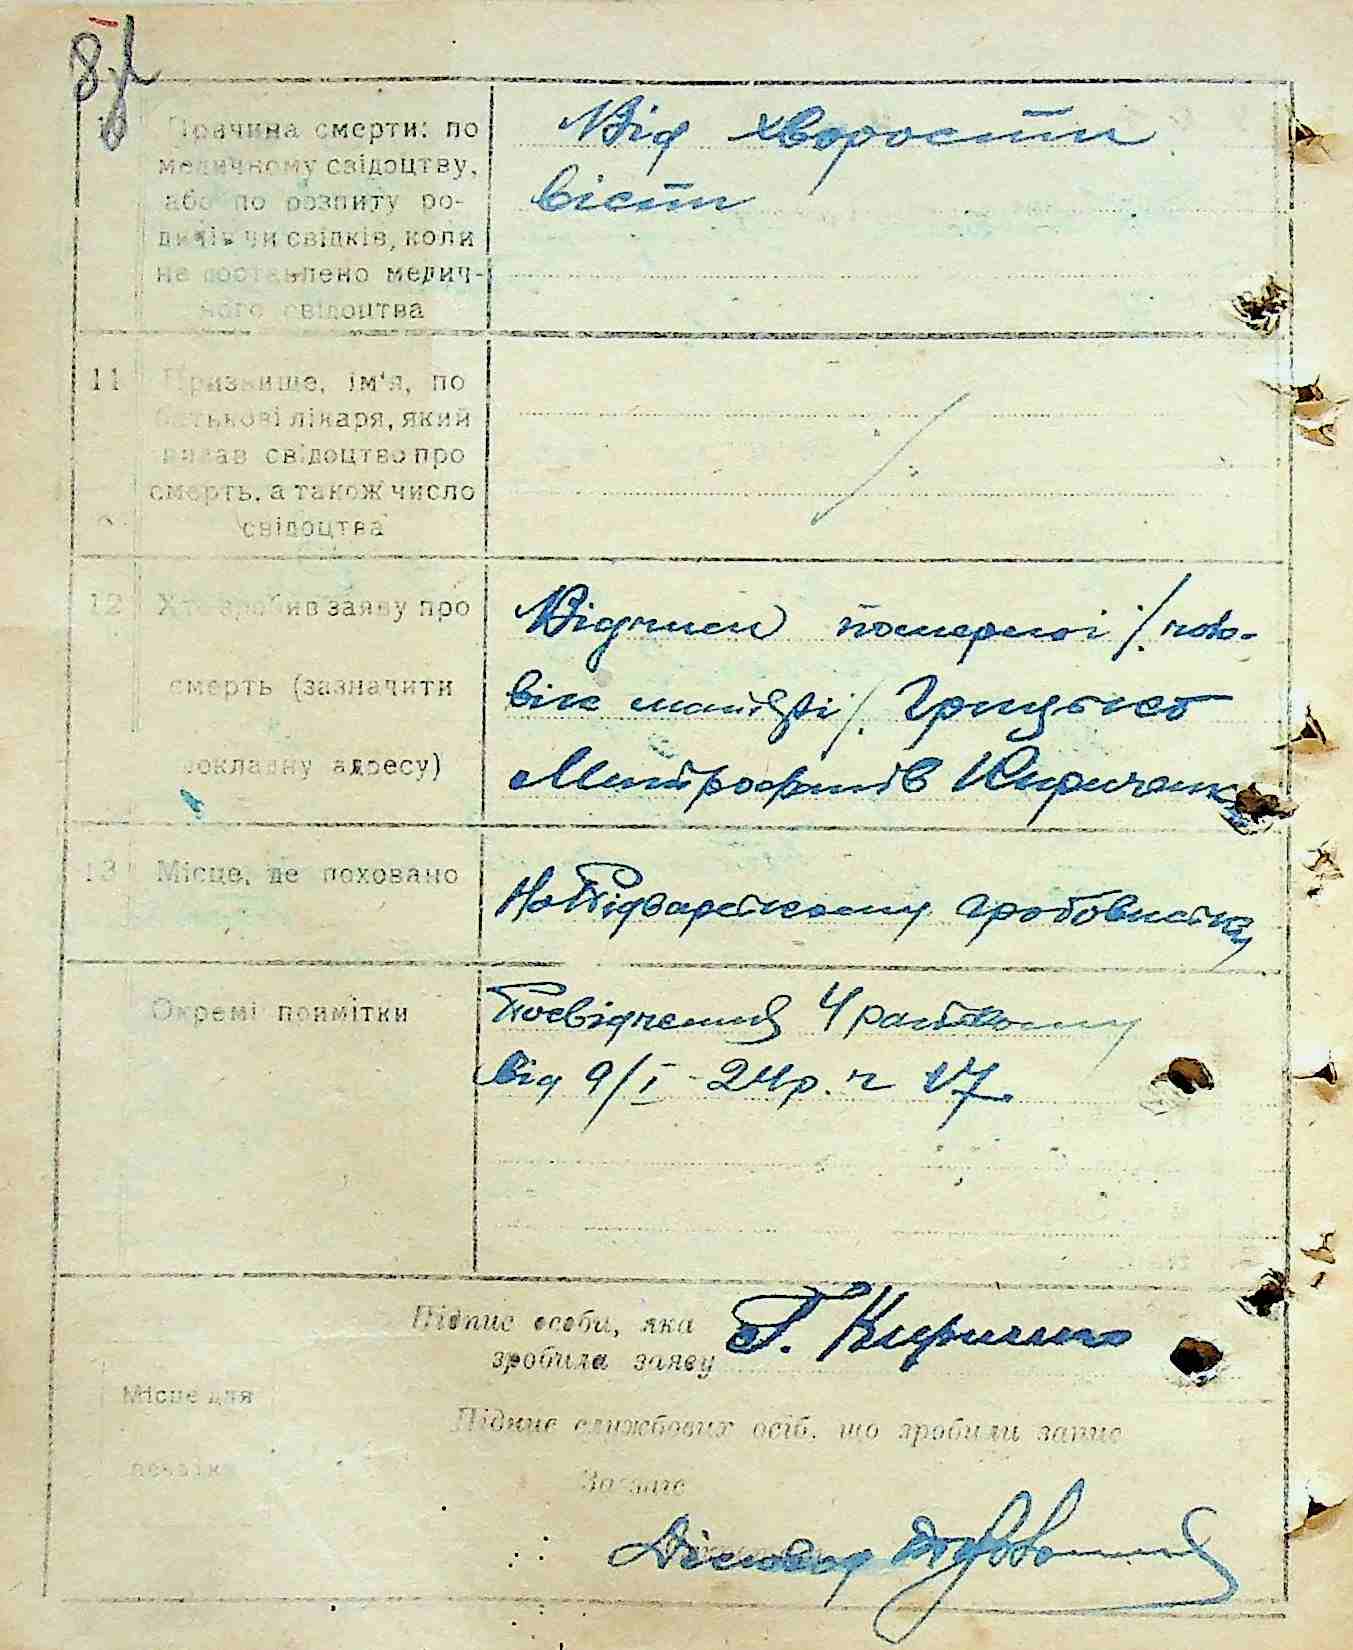 10 Причина смерти: по
медичному свідоцтву,
або по розпиту ро-
дичів чи свідків, коли
не поставлено медич-
ного свідоцтва
Від хворости
вісти
11 Призвище, ім'я, по
батькові лікаря, який
видав свідоцтво про
смерть, а також число
свідоцтва
12 Хто зробив заяву про
смерть (зазначити
докладну адресу)
Відчим померлоі /. чоло-
вік матері/. Грицько
Митрофанів Кириченко
13 Місце, де поховано
На Підварському гробовиську
Окремі примітки
Посвідчення 4 райкому
від 9/I - 24р. ч 17.
Підпис особи, яка
зробила заяву Г. Кириченко
Місце для
печатки
Підпис службових осіб, що зробили запис
Зав загс
Діловод